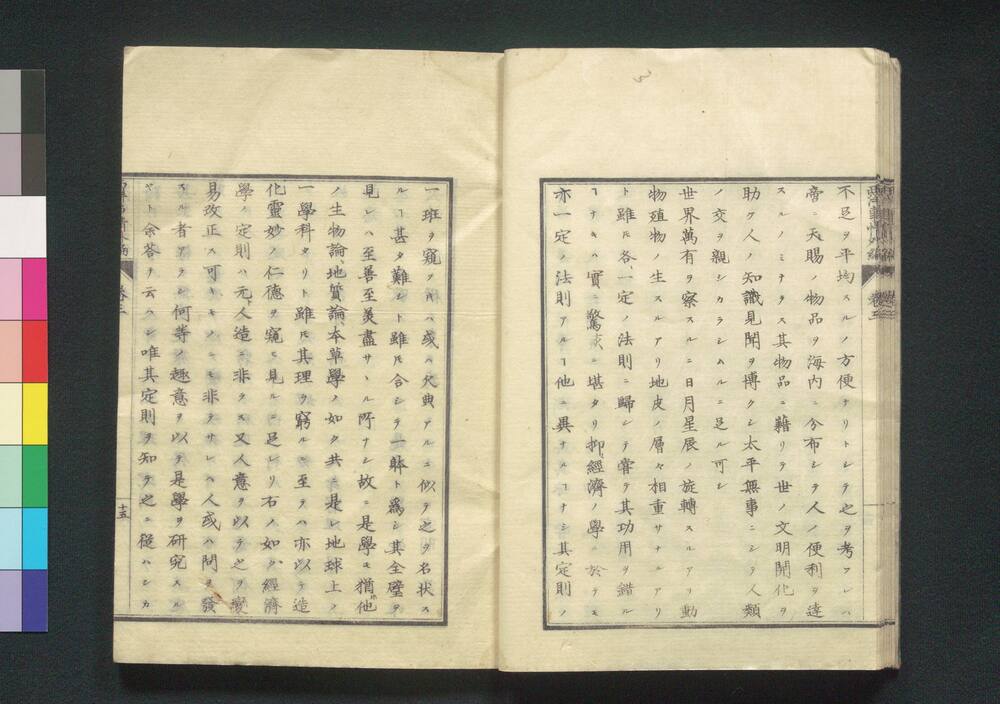 不足ヲ平均スルノ方便ナリトシテ之ヲ考フレハ
啻ニ天賜ノ物品ヲ海内ニ分布シテ人ノ便利ヲ達
スルノミナラス其物品ニ藉リテ世ノ文明開化ヲ
助ケ人ノ知識見聞ヲ博クシ太平無事ニシテ人類
ノ交ヲ親シカラシムルニ足ル可シ
世界萬有ヲ察スルニ日月星辰ノ旋轉スルアリ動
物殖物ノ生スルアリ地皮ノ層々相重サナルアリ
ト雖𪜈各、一定ノ法則ニ歸シテ甞テ其功用ヲ錯ル
ヿナキハ實ニ驚駭ニ堪タリ抑、經濟ノ學ニ於テモ
亦一定ノ法則アルヿ他ニ異ナルヿナシ其定則ノ
一班ヲ窺クハ或ハ欠典アルニ似テ之ヲ名状ス
ルヿ甚タ難シト雖𪜈合シテ一躰ト爲シ其全璧ヲ
見レハ至善至美盡サヽル所ナシ故ニ是學モ猶他
ノ生物論、地質論、本草學ノ如ク共ニ是レ地球上ノ
一學科タリト雖𪜈其理ヲ窮ルニ至テハ亦以テ造
化靈妙ノ仁德ヲ窺ヒ見ルニ足レリ右ノ如ク經濟
學ノ定則ハ元、人造ニ非ラス又人意ヲ以テ之ヲ變
易改正ス可キモノニモ非ラサレハ人或ハ問ヲ發
スル者アラン何等ノ趣意ヲ以テ是學ヲ研究スル
ヤト余荅テ云ハン唯其定則ヲ知テ之ニ從ハンカ
十五